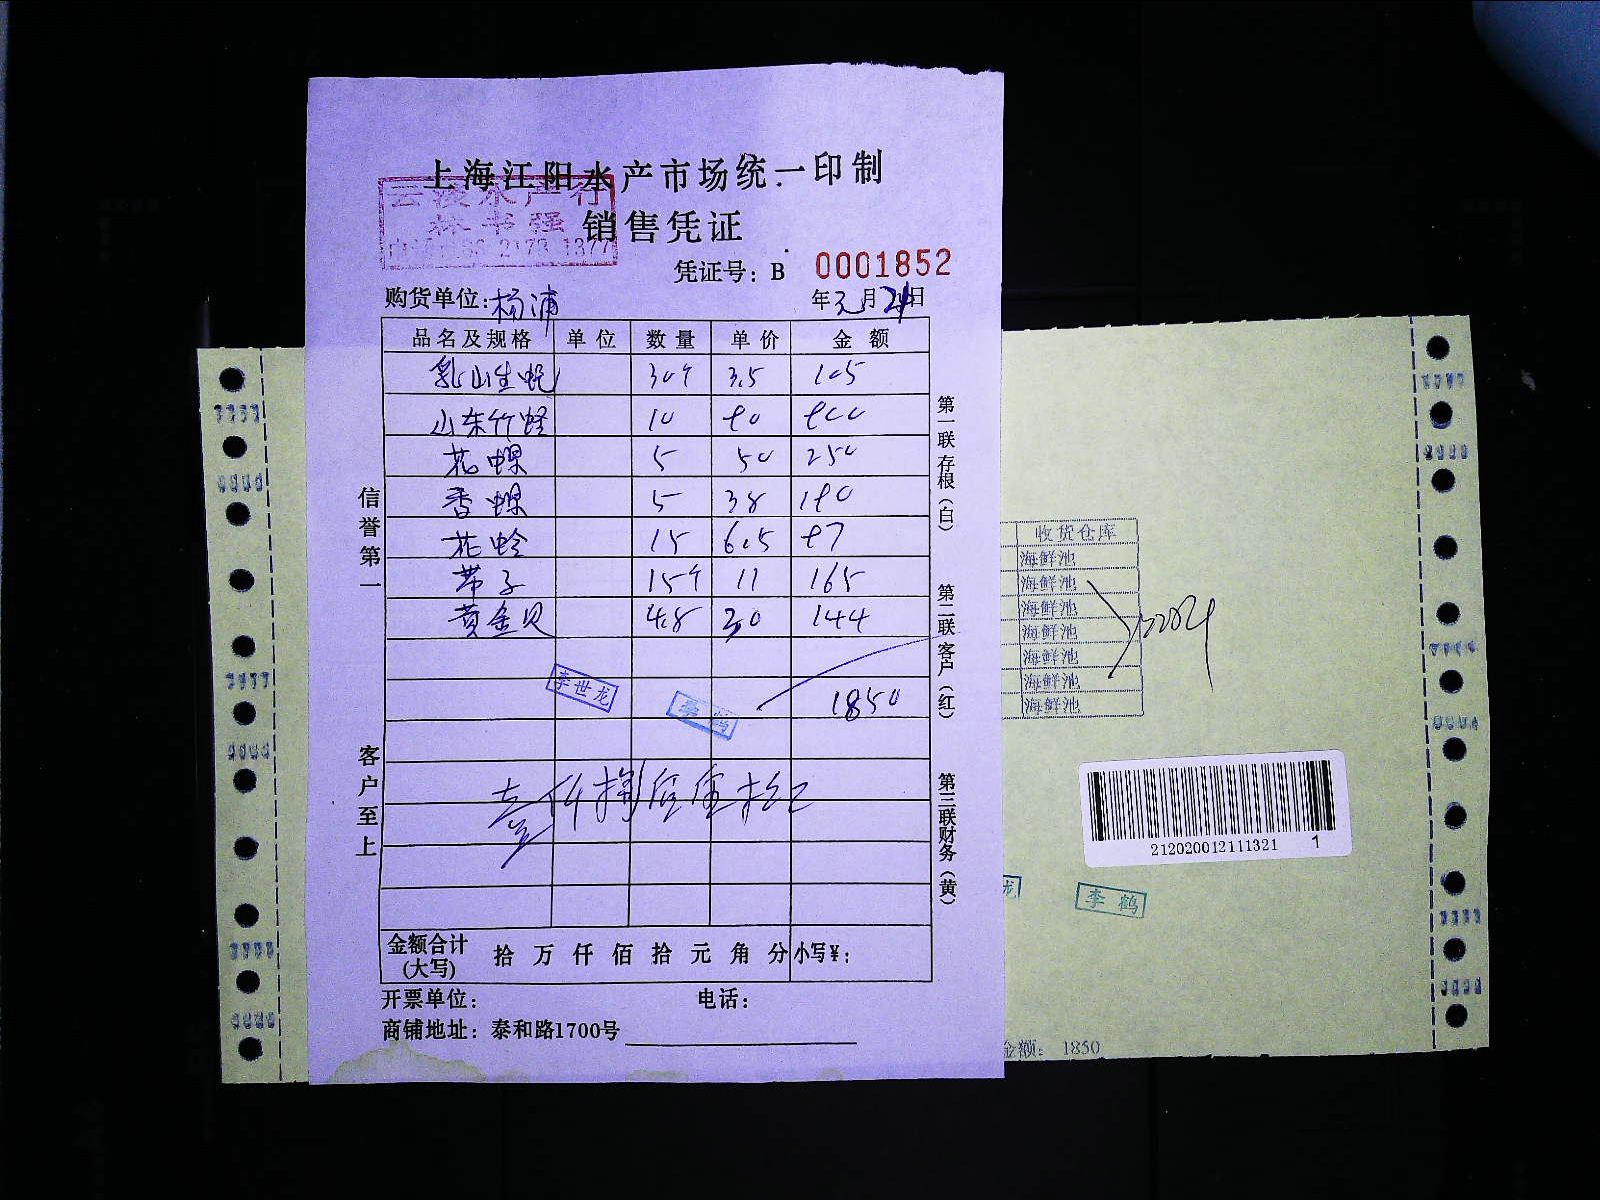 上海江阳水产市场统一印制
水产行
销售凭证
凭证号：B 0001852
购货单位：杨浦 年3月24日
品名及规格 单位 数量 单价 金额
乳山生蚝 30个 3.5 105
山东竹蛏 10 90 900
花螺 5 50 250
香螺 5 38 190
花蛤 15 6.5 97
带子 15个 11 165
黄金贝 4.8 30 144
李世龙
1850
壹仟捌佰伍拾
金额合计(大写) 拾 万 仟 佰 拾 元 角 分 小写¥：
开票单位： 电话：
商铺地址：泰和路1700号
信誉第一
客户至上
第一联存根（白）
第二联客户（红）
第三联财务（黄）
收货仓库
海鲜池
海鲜池
海鲜池
海鲜池
海鲜池
海鲜池
海鲜池
212020012111321 1
龙
李鹤
金额： 1850